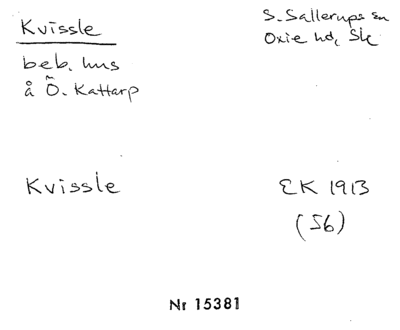 Kvissle
S. Sallerups sn
Oxie hd, Sk
beb. hus
å Ö. Kattarp
Kvissle
EK 1913
(56)
Nr 15381